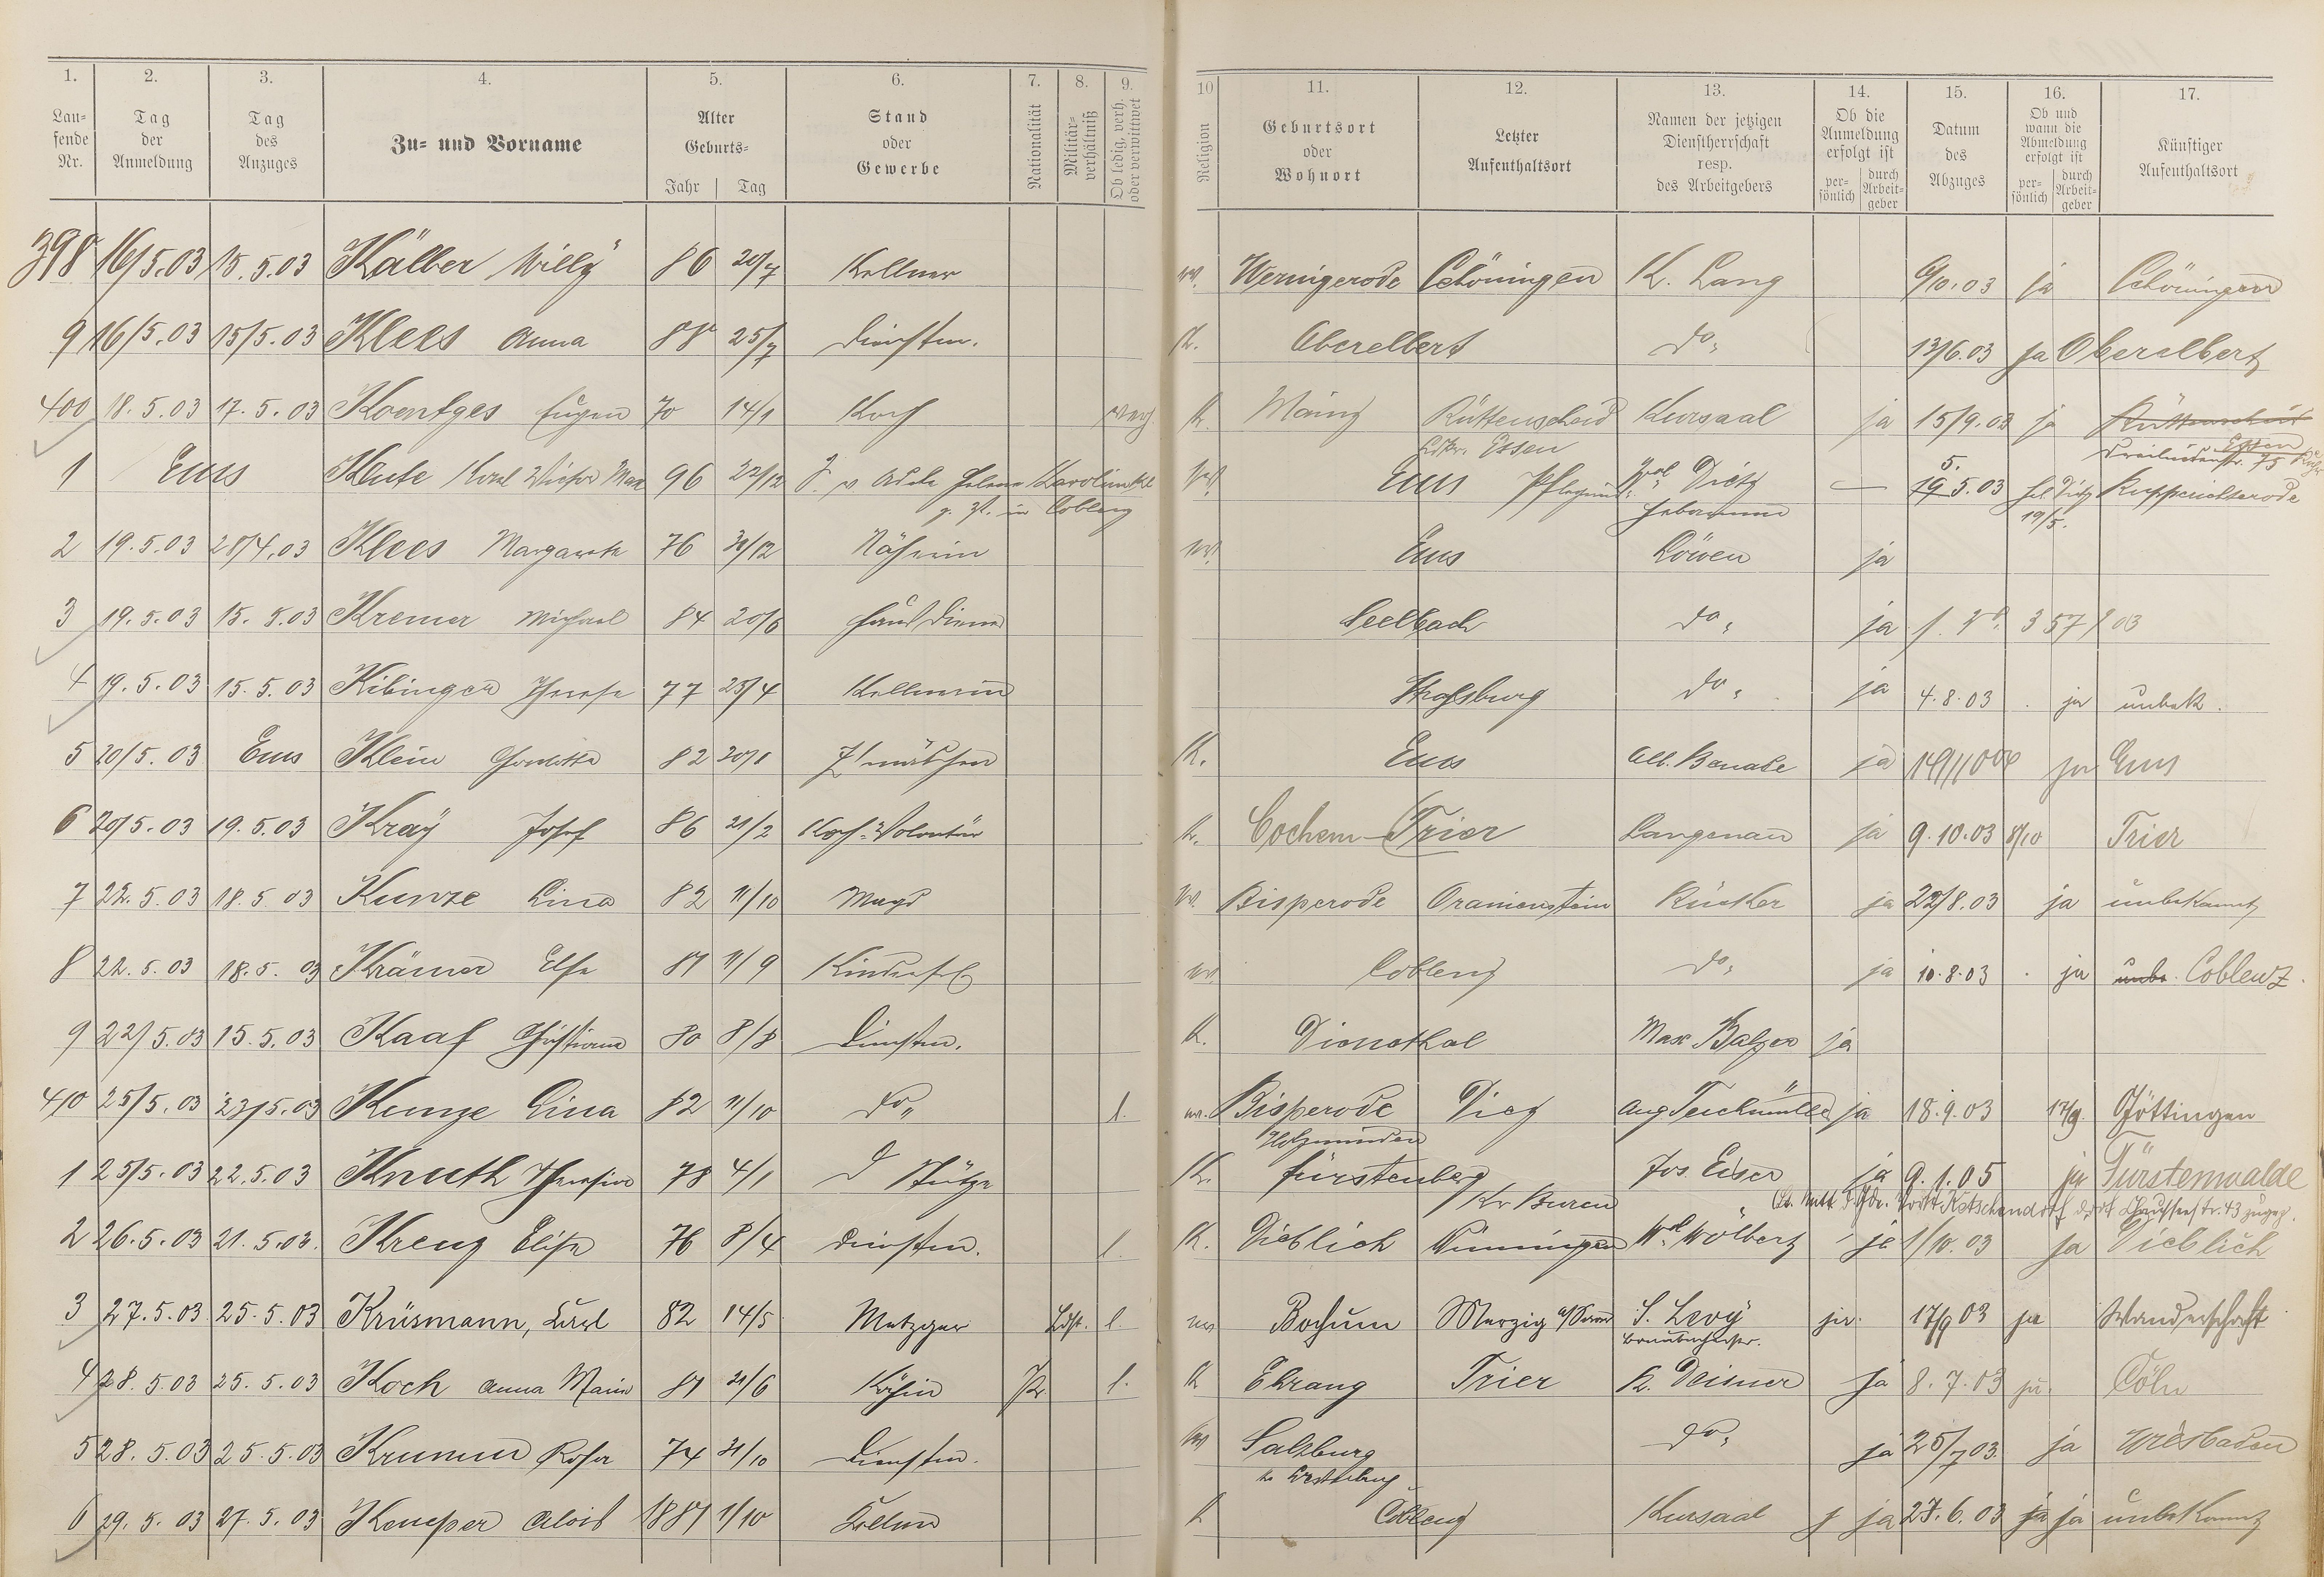 1. 2. 3. 4. 5. 6. 7. 8. 9. 10 11. 12. 13. 14. 15. 16. 17.
Lau-
fende
Nr.
Tag
der
Anmeldung
Tag
des
Anzuges
Zu- und Vorname
Alter
Geburts-
Jahr Tag
Stand
oder
Gewerbe
Nationalität
Militär-
verhältniß
Ob ledig, verh.
oder verwittwet
Religion
Geburtsort
oder
Wohnort
Letzter
Aufenthaltsort
Namen der jetzigen
Dienstherrschaft
resp.
des Arbeitgebers
Ob die
Anmeldung
erfolgt ist
per-
sönlich
durch
Arbeit-
geber
Datum
des
Abzuges
Ob und
wann die
Abmeldung
erfolgt ist
per-
sönlich
durch
Arbeit-
geber
Künftiger
Aufenthaltsort
398 16/5.03 15.5.03 Kälber Willy 86 20/7 Kellner Wernigerode Schöningen K. Lang 6/10.03 ja Schöningen
9 16/5.03 15/5.03 Klees Anna 88 25/7 Dienstm. K. Oberelbert do. 13/6.03 ja Oberelbert
400 18.5.03 17.5.03 Koentges Eugen 70 14/1 Koch verh. K. Mainz Rüttenscheid Kursaal ja 15/9.03 ja Rüttenscheid
Ldkr. Essen Essen
Dreilindenstr. 75
1 Ems Klute Karl Victor Max 96 22/12 S. v Adele Helene Karoline Kl. Ems Pflegekind Dietz — 19.5.03 Ruppichterode
z. Zt. in Coblenz Hebamme 19/5.
2 19.5.03 28/4.03 Klees Margarete 76 Näherin Ems Löwen ja
3 19.5.03 15.5.03 Kremer Michael 84 20/6 Hausdiener Seelbach do. ja s. No. 357/03
4 19.5.03 15.5.03 Kibinger Therese 77 25/4 Kellnerin Straßburg do. ja 4.8.03 ja unbek.
5 20/5.03 Ems Klein Henriette 82 20/1 Z'mädchen K. Ems Alb. Benade ja ja Ems
6 20/5.03 19.5.03 Kray Josef 86 21/2 Koch-Volontär K. Cochem-Trier Langenau ja 9.10.03 8/10 Trier
7 22.5.03 18.5.03 Kunze Lina 82 11/10 Magd Bisperode Oranienstein Rücker ja 22/8.03 ja unbekannt
8 22.5.03 18.5.03 Krämer Else 81 11/9 Kinderfrl Coblenz do. ja 10.8.03 ja unbe. Coblenz.
9 22/5.03 15.5.03 Kaaf Christiane 80 8/8 Dienstm. K. Dienethal Max Balzer ja
410 25/5.03 23/5.03 Kunze Lina 82 11/10 do. l. Bisperode Diez Aug Teichmüller ja 18.9.03 17/9. Göttingen
Holzminden
1 25/5.03 22.5.03 Knuth Theresia 78 4/1 d Stütze K. Fürstenberg Jos. Eiser ja 9.1.05 ja Fürstenwalde
Kr Büren Lt. Mitt. d. Gde. Vorst. Ketschendorf dort Chausseestr. 43 zugez.
2 26.5.03 21.5.03. Kreuz Elise 76 8/4 Dienstm. l. K. Dieblich Winningen Wilh. Wölbert ja 1/10.03 ja Dieblich
3 27.5.03 25.5.03 Krüsmann, Karl 82 14/5 Metzger Ldst. l. Bochum Merzig a/Saar S. Levy ja. 17/9 03 ja Wanderschaft
4 28.5.03 25.5.03 Koch Anna Maria 81 21/6 Köchin Pr. l. K Ehrang Trier K. Deisner ja 8.7.03 ja. Cöln
5 28.5.03 25.5.03 Krumm Rosa 74 21/10 Dienstm. Salzburg do. ja 25/7 03. ja Wiesbaden
Kr Westerburg
6 29.5.03 27.5.03 Kemper Alois 1881 1/10 Kellner K Coblenz Kursaal j ja 27.6.03 ja ja unbekannt